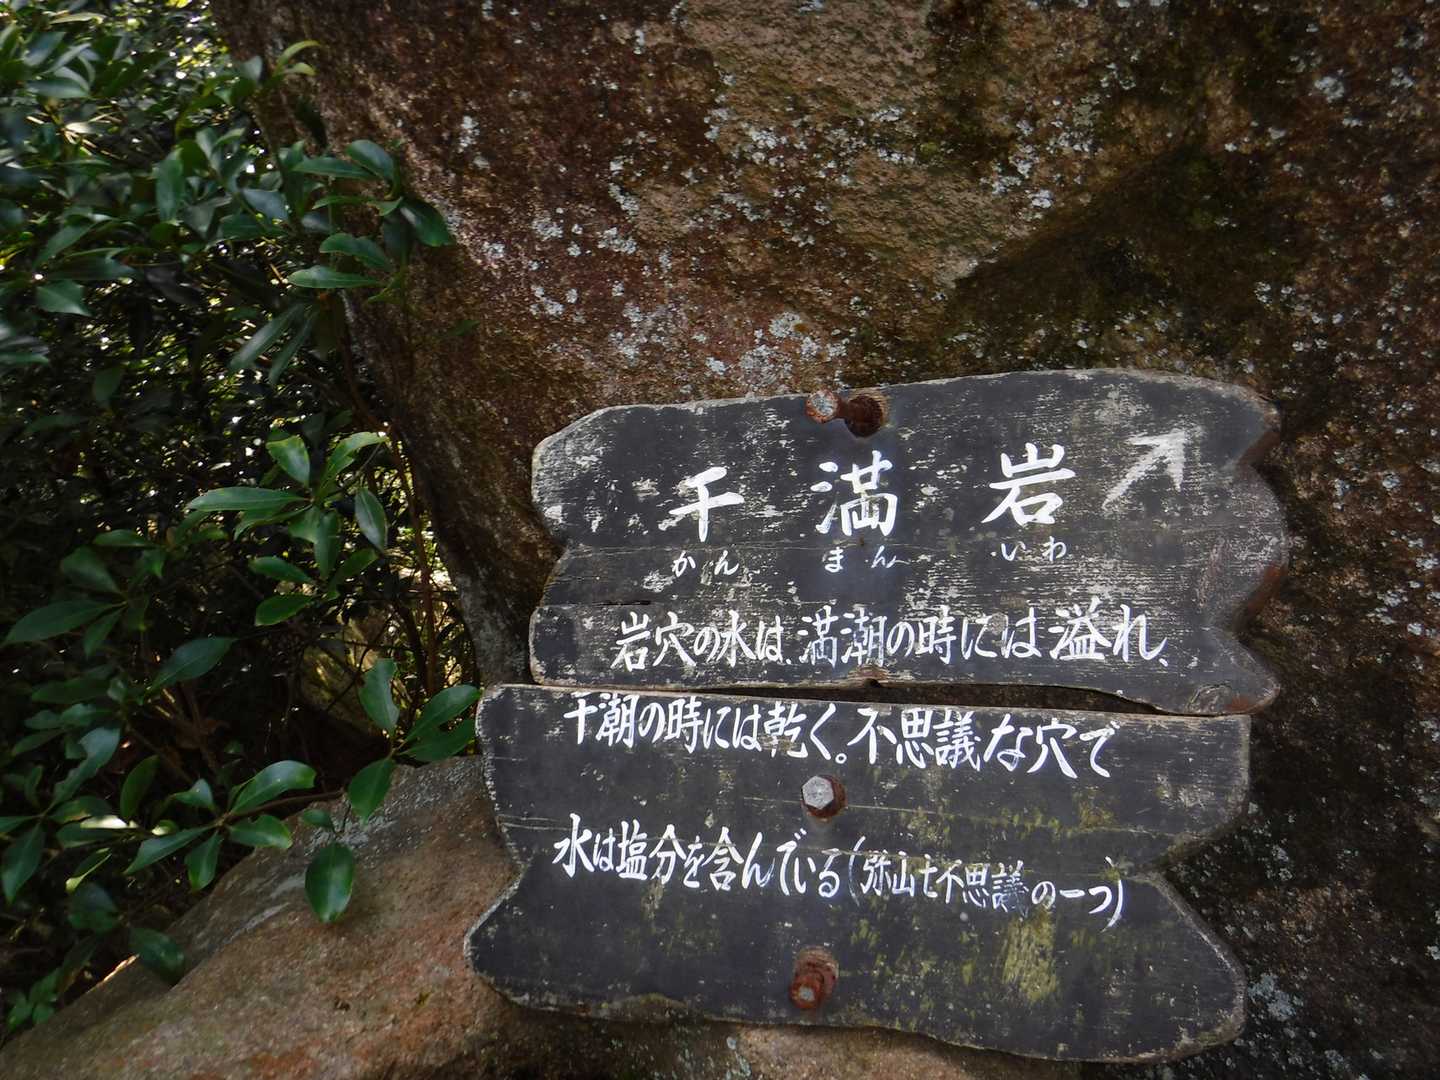 干満岩
かんまんいわ
岩穴の水は、満潮の時には溢れ、
干潮の時には乾く。不思議な穴で
水は塩分を含んでいる(弥山七不思議の一つ)